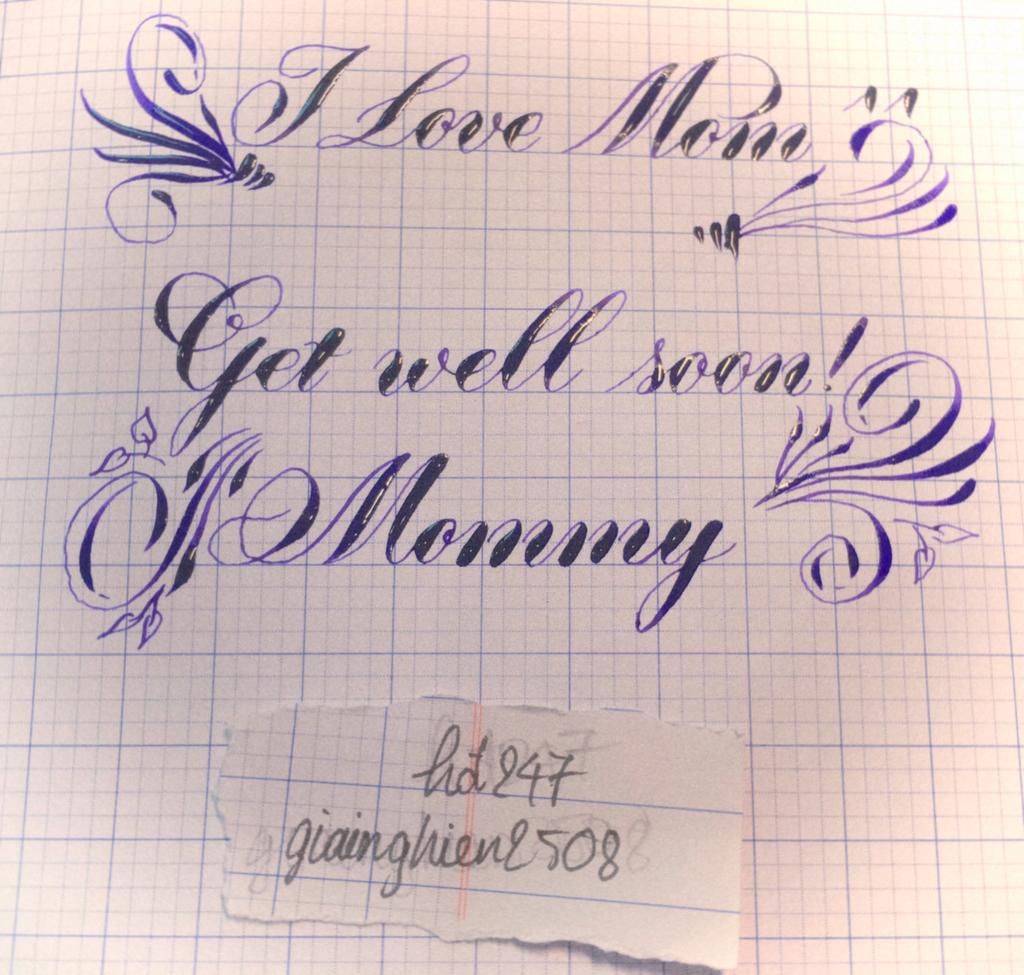 I Love Mom
Get well soon!
Mommy
hd247
giainghien2508